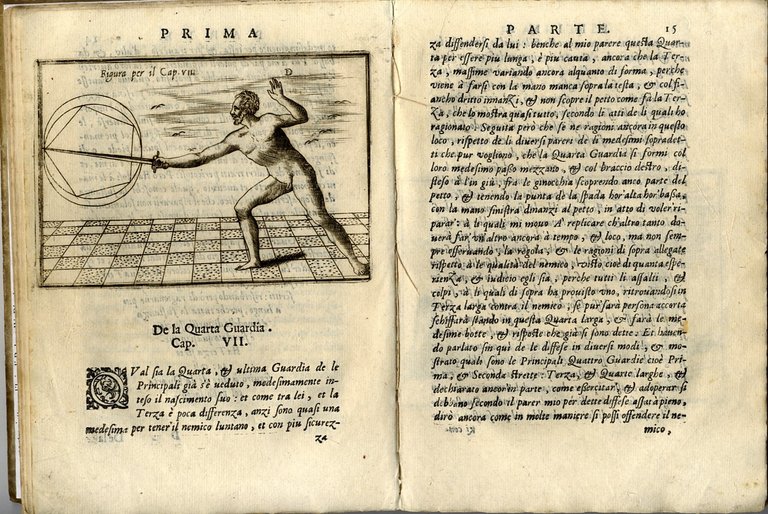 PRIMA
Figura per il Cap. VII
D
De la Quarta Guardia.
Cap. VII.
QVal sia la Quarta, & ultima Guardia de le
Principali già s'è veduto, medesimamente in-
teso il nascimento suo: et come tra lei, et la
Terza è poca differenza, anzi sono quasi una
medesima per tener'il nemico luntano, et con piu sicurez-
za
PARTE. 15
za diffendersi da lui: benche al mio parere questa Quar-
ta per essere piu lunga, è piu cauta, ancora che la Ter-
za, massime variando ancora alquanto di forma, perche
viene à farsi con la mano manca sopra la testa, & col fi-
ancho dritto innanzi, & non scopre il petto come fà la Ter-
za, che lo mostra quasi tutto, secondo li atti de li quali hò
ragionato: Seguita però che se ne ragioni ancora in questo
loco, rispetto de li diversi pareri de li medesimi sopradet-
ti che pur vogliono, che la Quarta Guardia si formi col
loro medesimo passo mezzano, & col braccio destro, di-
steso à l'in giù, frà le ginocchia scoprendo anco parte del
petto, & tenendo la punta de la spada hor'alta hor'bassa,
con la mano sinistra dinanzi al petto, in atto di voler'ri-
parar': à li quali mi movo A' replicare ch'altro tanto do-
verà far'un'altro ancora à tempo, & loco, ma non sem-
pre osservando, la regola, & le ragioni di sopra allegate
rispetto à le qualità del nemico, visto cioè di quanta espe-
rienza, & iudicio egli sia, perche tutti li assalti, &
colpi, à li quali di sopra hà provisto uno, ritrovandosi in
Terza larga contra il nemico, se pur sarà persona accorta
schiffarà stando in questa Quarta larga, & farà le me-
desime botte, & risposte che già si sono dette: Et haven-
do parlato sin quì de le diffese in diversi modi, & mo-
strato quali sono le Principali Quattro Guardie cioè Pri-
ma, & Seconda strette: Terza, & Quarte larghe, &
dechiarato ancor'in parte, come essercitar', & adoperar si
debbano secondo il parer mio per dette diffese assai à pieno,
dirò ancora come in molte maniere si possi offendere il ne-
mico,